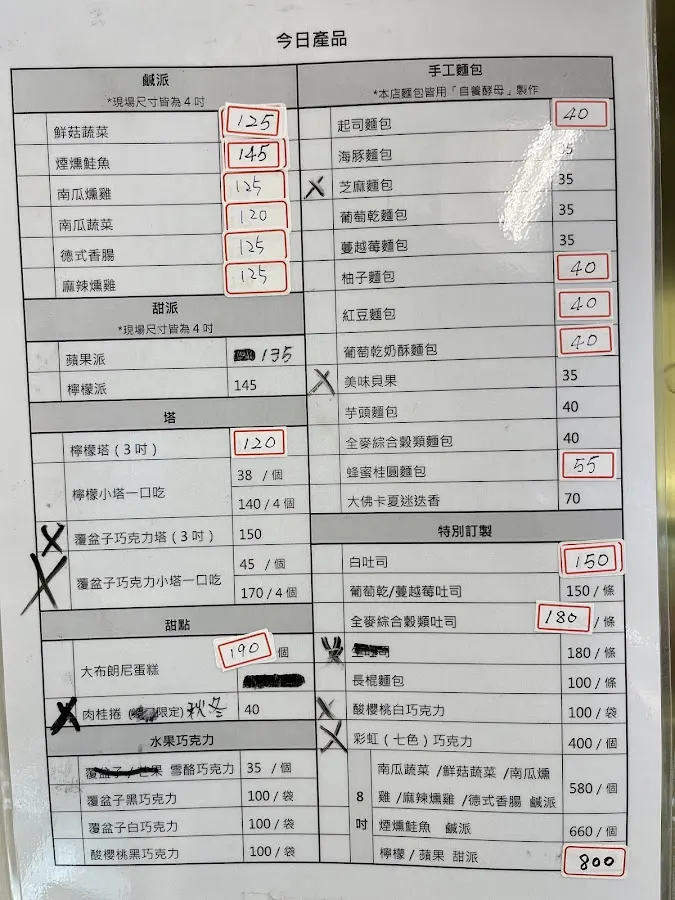 今日產品
鹹派
*現場尺寸皆為 4 吋
鮮菇蔬菜 125
煙燻鮭魚 145
南瓜燻雞 125
南瓜蔬菜 120
德式香腸 125
麻辣燻雞 125
甜派
*現場尺寸皆為 4 吋
蘋果派 135
檸檬派 145
塔
檸檬塔 ( 3 吋 ) 120
檸檬小塔一口吃
38 / 個
140 / 4 個
覆盆子巧克力塔 ( 3 吋 ) 150
覆盆子巧克力小塔一口吃
45 / 個
170 / 4 個
甜點
大布朗尼蛋糕
190 個
肉桂捲 ( 限定) 秋冬 40
水果巧克力
覆盆子 / 芒果 雪酪巧克力 35 / 個
覆盆子黑巧克力 100 / 袋
覆盆子白巧克力 100 / 袋
酸櫻桃黑巧克力 100 / 袋
手工麵包
*本店麵包皆用「自養酵母」製作
起司麵包 40
海豚麵包 35
芝麻麵包 35
葡萄乾麵包 35
蔓越莓麵包 35
柚子麵包 40
紅豆麵包 40
葡萄乾奶酥麵包 40
美味貝果 35
芋頭麵包 40
全麥綜合穀類麵包 40
蜂蜜桂圓麵包 55
大佛卡夏迷迭香 70
特別訂製
白吐司 150
葡萄乾/蔓越莓吐司 150 / 條
全麥綜合穀類吐司 180 / 條
180 / 條
長棍麵包 100 / 條
酸櫻桃白巧克力 100 / 袋
彩虹 ( 七色 ) 巧克力 400 / 個
8 吋
南瓜蔬菜 /鮮菇蔬菜 /南瓜燻
雞 /麻辣燻雞 /德式香腸 鹹派 580 / 個
煙燻鮭魚 鹹派 660 / 個
檸檬 / 蘋果 甜派 800